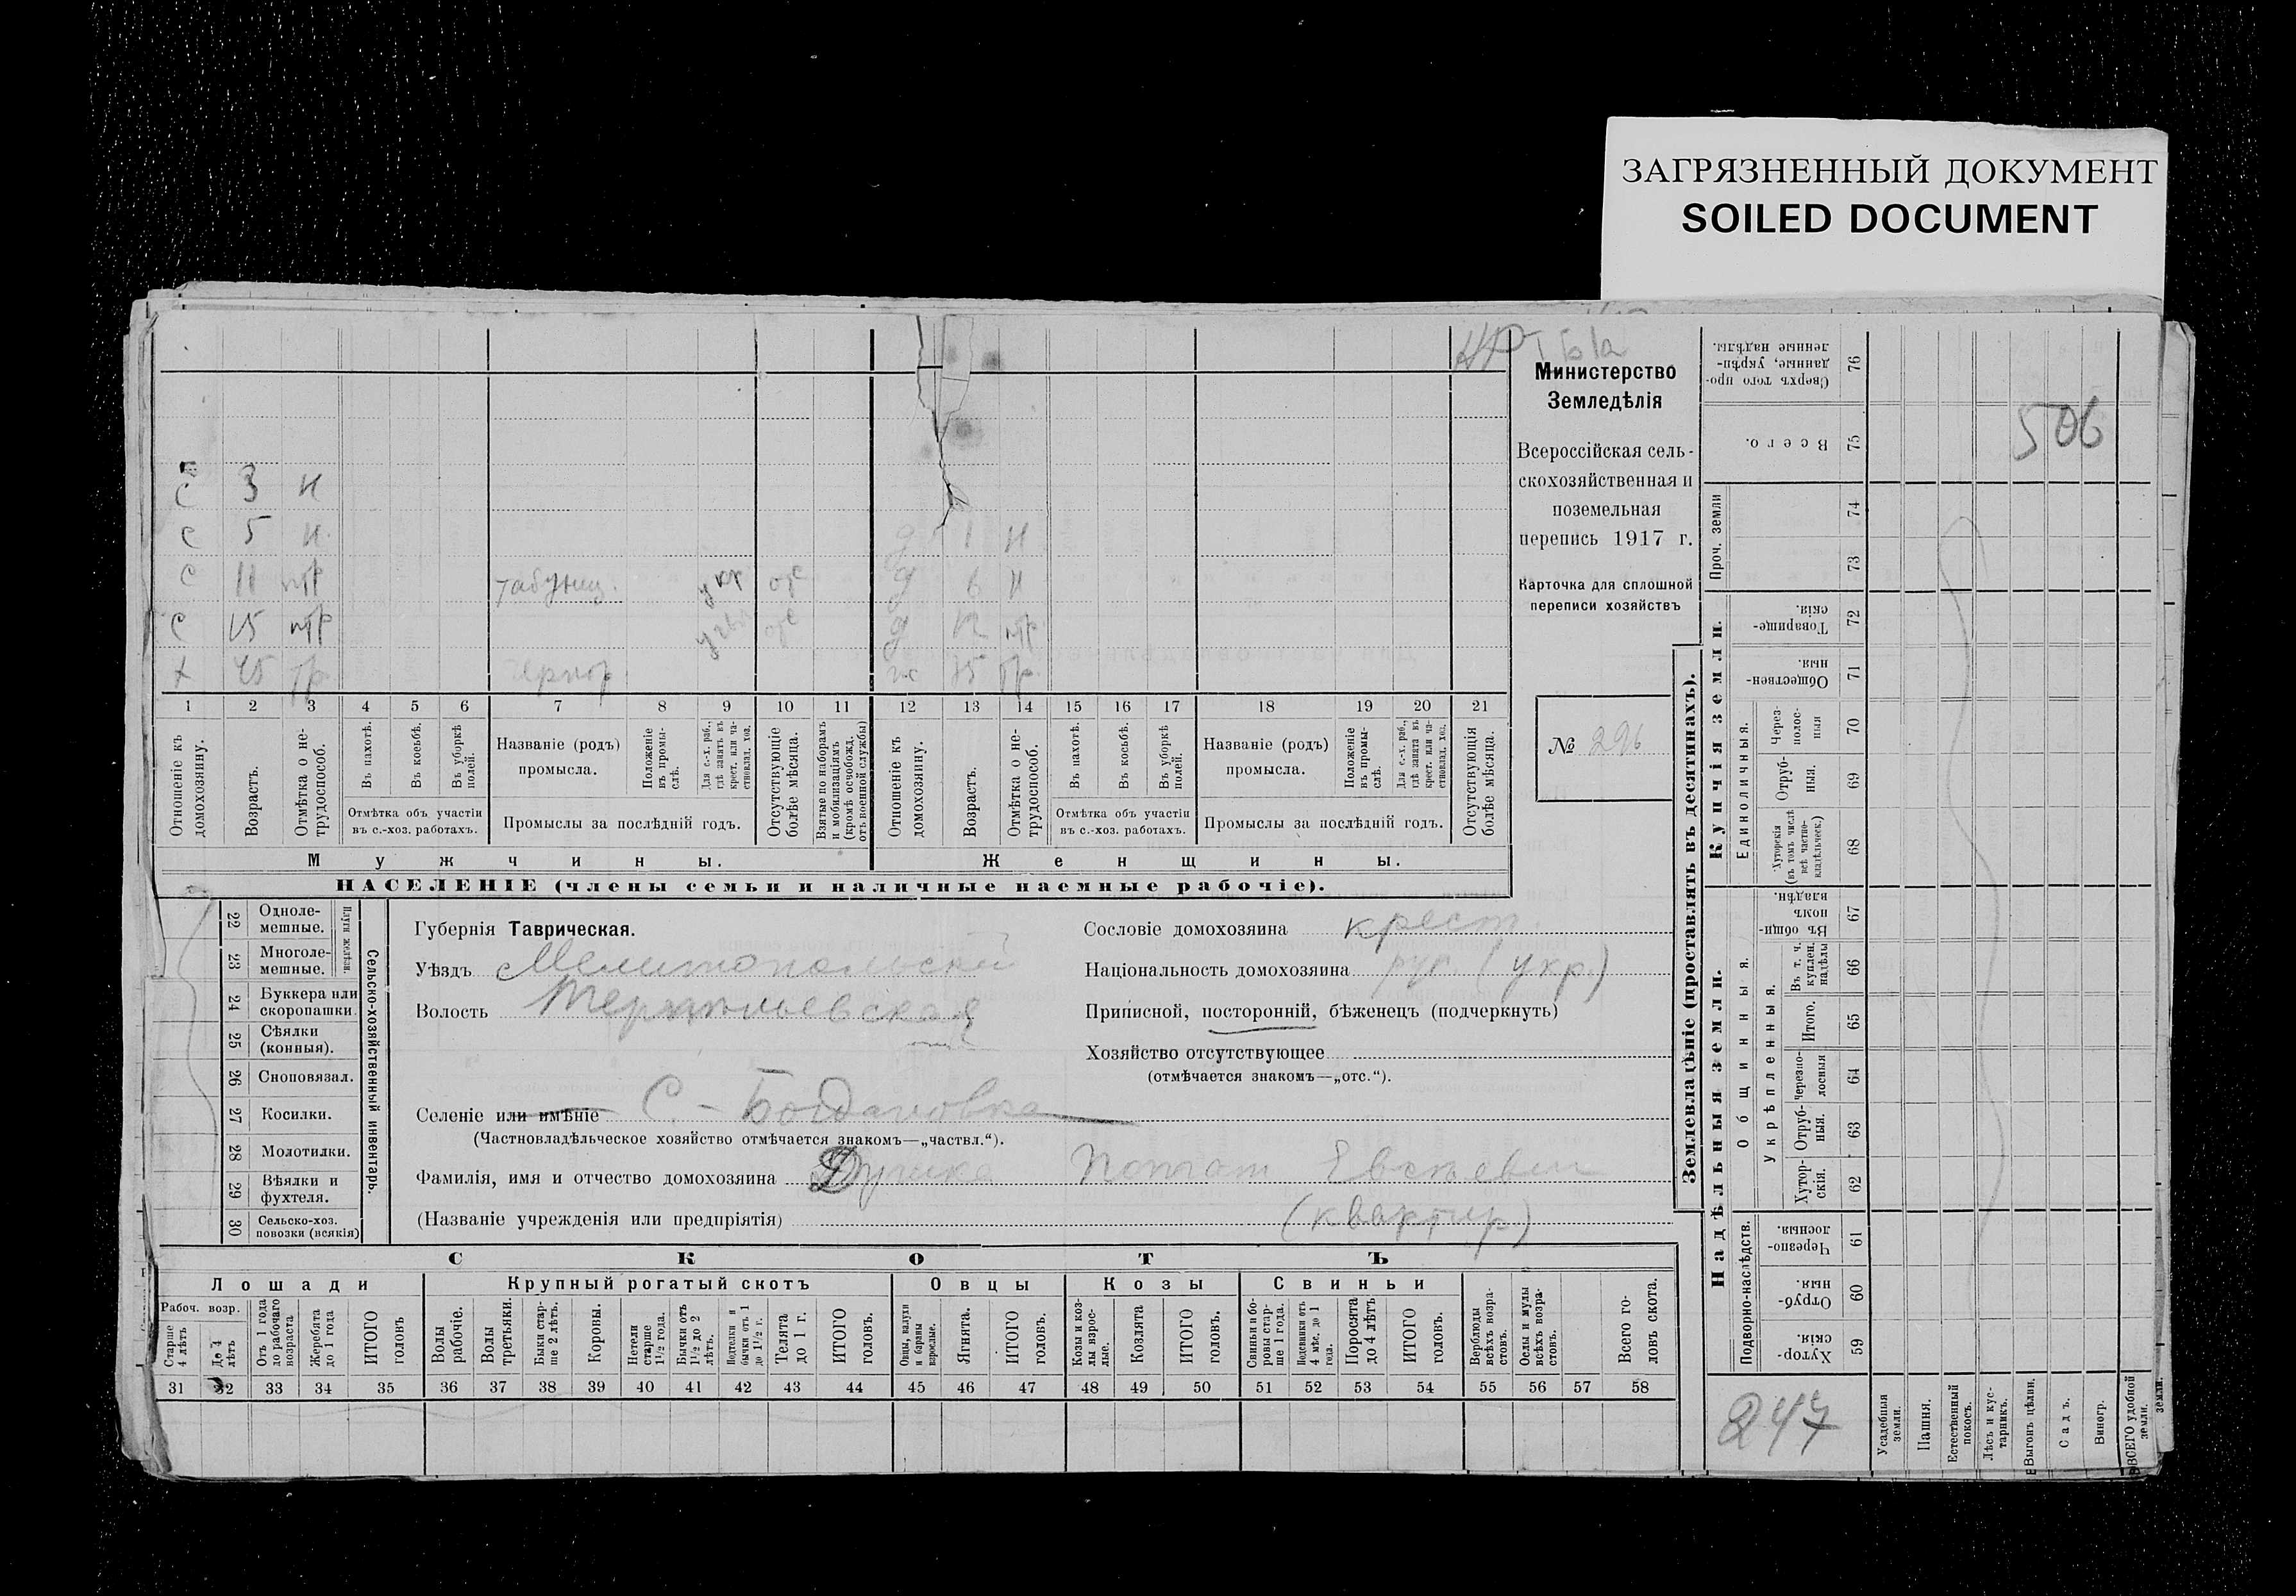 ЗАГРЯЗНЕННЫЙ ДОКУМЕНТ
SOILED DOCUMENT
Министерство
Земледѣлія
Всероссійская сель-
скохозяйственная и
поземельная
перепись 1917 г.
Карточка для сплошной
переписи хозяйствъ
№ 296
506
с 3 н
с 5 н. д 1 н
с 11 птр табунщ. укр отс д 6 н
с 15 птр отс д 12 птр
х 45 тр ж 35 тр
1 2 3 4 5 6 7 8 9 10 11 12 13 14 15 16 17 18 19 20 21
Отношеніе къ домохозяину.
Возрастъ.
Отмѣтка о не-трудоспособ.
Въ пахотѣ.
Въ косьбѣ.
Въ уборкѣ полей.
Отмѣтка объ участіи
въ с.-хоз. работахъ.
Названіе (родъ)
промысла.
Положеніе въ промы-слѣ.
Для с.-х. раб., гдѣ занятъ въ крест. или ча-стновлад. хоз.
Промыслы за послѣдній годъ.
Отсутствующіе болѣе мѣсяца.
Взятые по наборамъ и мобилизаціямъ (кромѣ освобожд. отъ военной службы)
Отношеніе къ домохозяину.
Возрастъ.
Отмѣтка о не-трудоспособ.
Въ пахотѣ.
Въ косьбѣ.
Въ уборкѣ полей.
Отмѣтка объ участіи
въ с.-хоз. работахъ.
Названіе (родъ)
промысла.
Положеніе въ промы-слѣ.
Для с.-х. раб., гдѣ занята въ крест. или ча-стновлад. хоз.
Промыслы за послѣдній годъ.
Отсутствующія болѣе мѣсяца.
Мужчины.
Женщины.
НАСЕЛЕНІЕ (члены семьи и наличные наемные рабочіе).
22 Одноле-мешные.
23 Многоле-мешные.
Плуги желѣзн.
24 Буккера или скоропашки.
25 Сѣялки (конныя).
26 Сноповязал.
27 Косилки.
28 Молотилки.
29 Вѣялки и фухтеля.
30 Сельско-хоз. повозки (всякія)
Сельско-хозяйственный инвентарь.
Губернія Таврическая.
Уѣздъ Мелитопольскій
Волость
Селеніе или имѣніе С.- Богдановка
(Частновладѣльческое хозяйство отмѣчается знакомъ—„частвл.“).
Фамилія, имя и отчество домохозяина
(Названіе учрежденія или предпріятія) (квартир.)
Сословіе домохозяина крест.
Національность домохозяина рус. (укр.)
Приписной, посторонній, бѣженецъ (подчеркнуть)
Хозяйство отсутствующее
(отмѣчается знакомъ—„отс.“).
СКОТЪ
Лошади
Крупный рогатый скотъ
Овцы
Козы
Свиньи
Рабоч. возр.
Старше 4 лѣтъ
До 4 лѣтъ
Отъ 1 года до рабочаго возраста
Жеребята до 1 года
ИТОГО головъ
Волы рабочіе.
Волы третьяки.
Быки стар-ше 2 лѣтъ.
Коровы.
Нетели старше 1½ года.
Бычки отъ 1½ до 2 лѣтъ.
Подтелки и бычки отъ 1 до 1½ г.
Телята до 1 г.
ИТОГО головъ.
Овцы, валухи и бараны взрослые.
Ягнята.
ИТОГО головъ.
Козы и коз-лы взрос-лые.
Козлята
ИТОГО головъ.
Свиньи и бо-ровы стар-ше 1 года.
Подсвинки отъ 4 мѣс. до 1 года.
Поросята до 4 лѣтъ
ИТОГО головъ.
Верблюды всѣхъ возра-стовъ.
Ослы и мулы всѣхъ возра-стовъ.
Всего го-ловъ скота.
31 32 33 34 35 36 37 38 39 40 41 42 43 44 45 46 47 48 49 50 51 52 53 54 55 56 57 58
Землевладѣніе (проставлять въ десятинахъ).
Купчія земли.
Надѣльныя земли.
Сверхъ того про-данные, укрѣп-ленные надѣлы. 76
Всего. 75
Проч. земли 74 73
Товарище-скія. 72
Обществен-ныя. 71
Единоличныя.
Через-полос-ныя 70
Отруб-ныя. 69
Хуторскія (въ томъ числѣ всѣ частно-владѣльческ.) 68
Общинныя.
Въ общин-номъ владѣн. 67
Укрѣпленныя.
Въ т. ч. куплен. надѣлы 66
Итого. 65
Черезпо-лосныя 64
Отруб-ныя. 63
Хутор-скія. 62
Подворно-наслѣдств.
Черезпо-лосныя 61
Отруб-ныя. 60
Хутор-скія. 59
247
Усадебныя земли.
Пашня.
Естественный покосъ.
Лѣсъ и кус-тарникъ.
Выгонъ цѣлин.
Садъ.
Виногр.
ВСЕГО удобной земли.